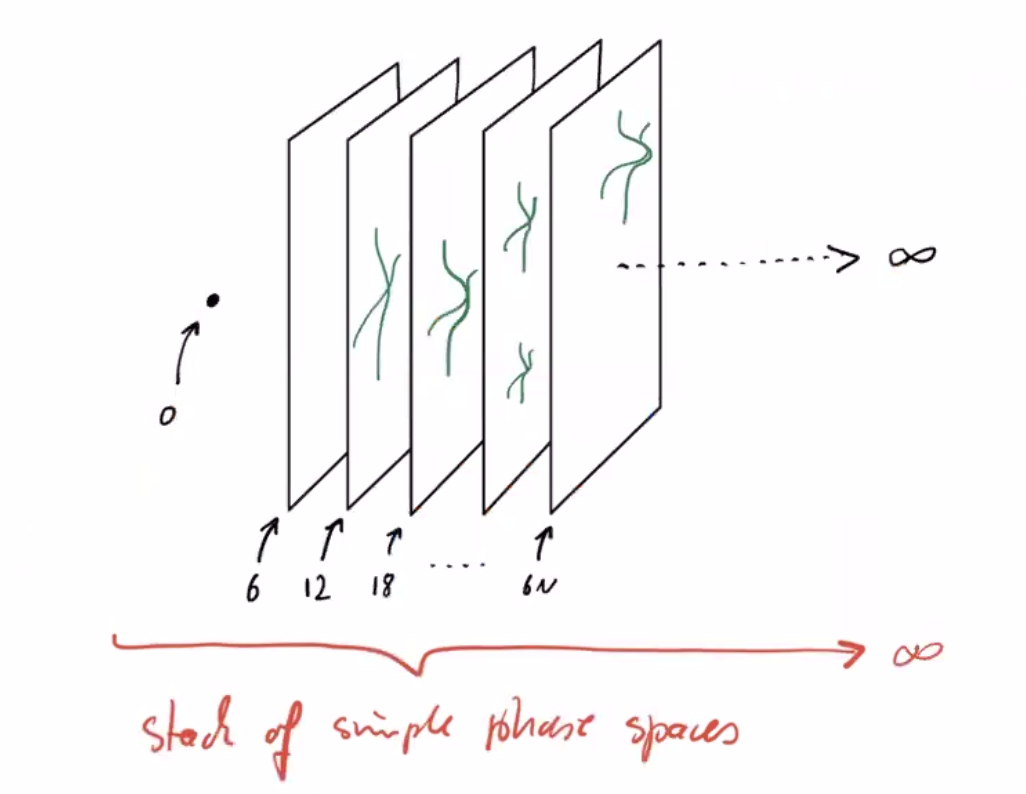 ∞
0
6 12 18 ..... 6N
∞
stack of simple phase spaces